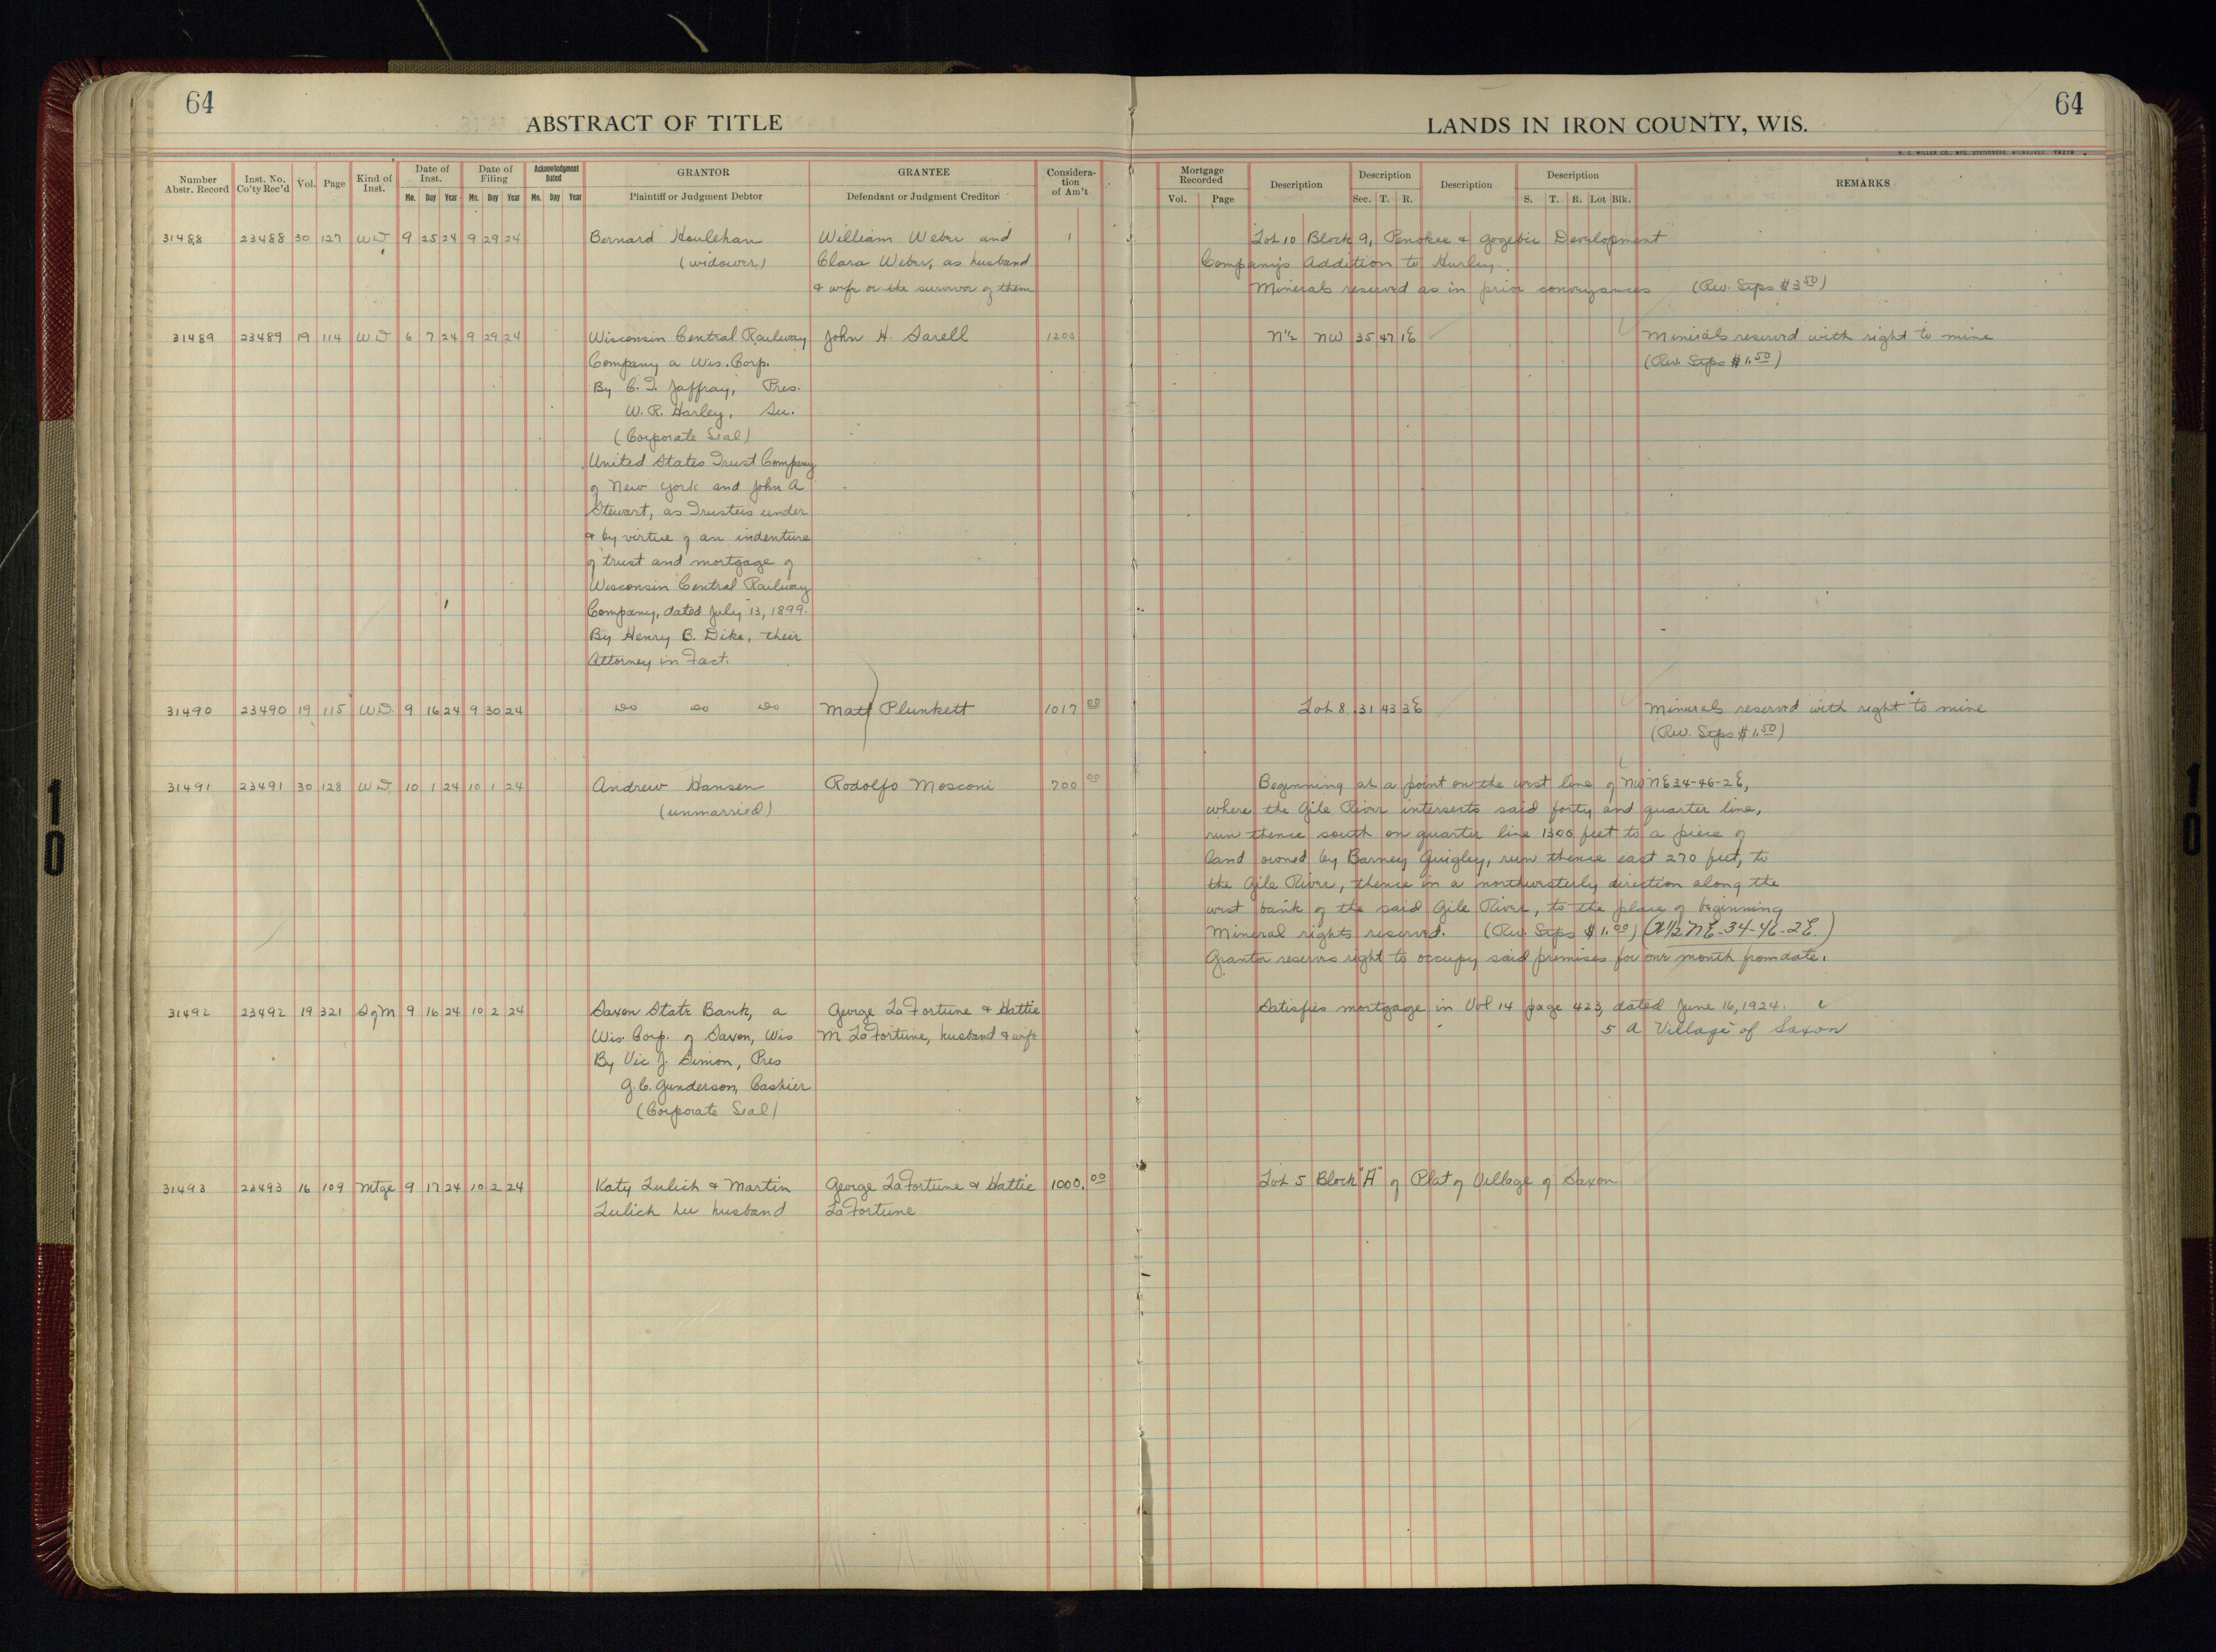 64
64
ABSTRACT OF TITLE
LANDS IN IRON COUNTY, WIS.
Number Abstr. Record Inst. No. Co'ty Rec'd Vol. Page Kind of Inst. Date of Inst. Mo. Day Year Date of Filing Mo. Day Year Acknowledgment Dated Mo. Day Year GRANTOR Plaintiff or Judgment Debtor GRANTEE Defendant or Judgment Creditor Considera-tion of Am't
Mortgage Recorded Vol. Page Description Description Sec. T. R. Description Description S. T. R. Lot Blk. REMARKS
31488 23488 30 127 WD 9 25 24 9 29 24 Bernard Houlehan William Weber and 1 Lot 10 Block 9, Penokee & Gogebic Development
(widower) Clara Weber, as husband Company's Addition to Hurley.
& wife or the survivor of them Minerals reserved as in prior conveyances (Rev. Stps $3.50)
31489 23489 19 114 WD 6 7 24 9 29 24 Wisconsin Central Railway John H. Sarell 1200 N½ NW 35 47 1E Minerals reserved with right to mine
Company a Wis. Corp. (Rev. Stps $1.50)
By C. T. Jaffray, Pres.
W. R. Harley, Sec.
(Corporate Seal)
United States Trust Company
of New York and John A
Stewart, as Trustees under
& by virtue of an indenture
of trust and mortgage of
Wisconsin Central Railway
Company, dated July 13, 1899.
By Henry B. Dike, their
Attorney in Fact.
31490 23490 19 115 WD. 9 16 24 9 30 24 Do Do Do Matt Plunkett 1017 00 Lot 8 31 43 3E Minerals reserved with right to mine
(Rev. Stps $1.50)
31491 23491 30 128 WD 10 1 24 10 1 24 Andrew Hansen Rodolfo Mosconi 700 00 Beginning at a point on the west line of NW NE 34-46-2E,
(unmarried) where the Gile River intersects said forty and quarter line,
run thence south on quarter line 1300 feet to a piece of
land owned by Barney Quigley, run thence east 270 feet, to
the Gile River, thence in a northwesterly direction along the
west bank of the said Gile River, to the place of beginning
Mineral rights reserved. (Rev. Stps $1.00) (W½ NE-34-46-2E.)
Grantor reserves right to occupy said premises for one month from date.
31492 23492 19 321 S of M 9 16 24 10 2 24 Saxon State Bank, a George LaFortune & Hattie Satisfies mortgage in Vol 14 page 423, dated June 16, 1924.
Wis. Corp. of Saxon, Wis M LaFortune, husband & wife 5 A Village of Saxon
By Vic J. Simon, Pres
G. C. Gunderson, Cashier
(Corporate Seal)
31493 23493 16 109 Mtge 9 17 24 10 2 24 Katy Lulich & Martin George LaFortune & Hattie 1000.00 Lot 5 Block "A" of Plat of Village of Saxon
Lulich her husband LaFortune
10
10